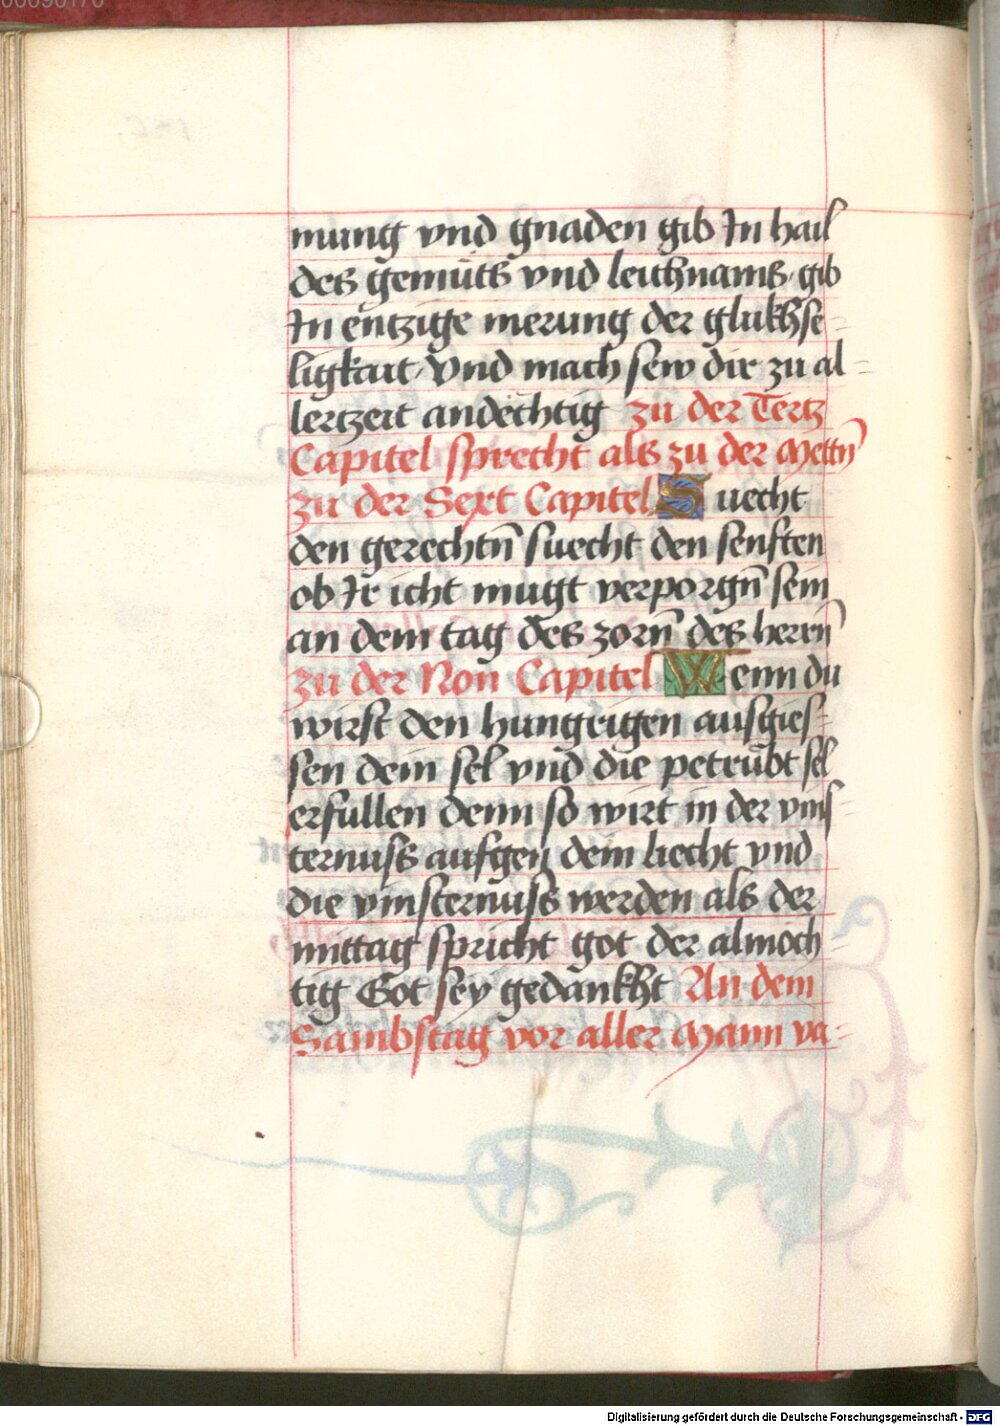 mung vnd gnaden gib In hail
des gemüts vnd leichnams gib
In entzige merung der glukhse-
ligkait Vnd mach sew dir zu al-
lertzeit andechtig zu der Tertz
Capitel sprecht als zu der Mettn̄
zu der Sext Capitel Suecht
den gerechtn̄ suecht den senften
ob Ir icht mugt verporgn̄ sein
an dem tag des zorn̄ des herrn̄
zu der Non Capitel Wenn du
wirst den hungrigen ausgies-
sen dein sel vnd die petrübt sel
erfullen denn so wirt in der vins-
ternuss aufgen dein liecht vnd
die vinsternuss werden als der
mittag spricht got der almech-
tig Got sey gedankht An dem
Sambstag vor aller Mann va-
Digitalisierung gefördert durch die Deutsche Forschungsgemeinschaft - DFG